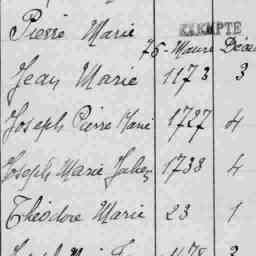 Pierre Marie EXEMPTÉ
75-Maure Déce
Jean Marie 1173 3
Joseph Pierre Marie 1727 4
Joseph Marie Julien 1738 4
Théodore Marie 23 1
Joseph 1178 3